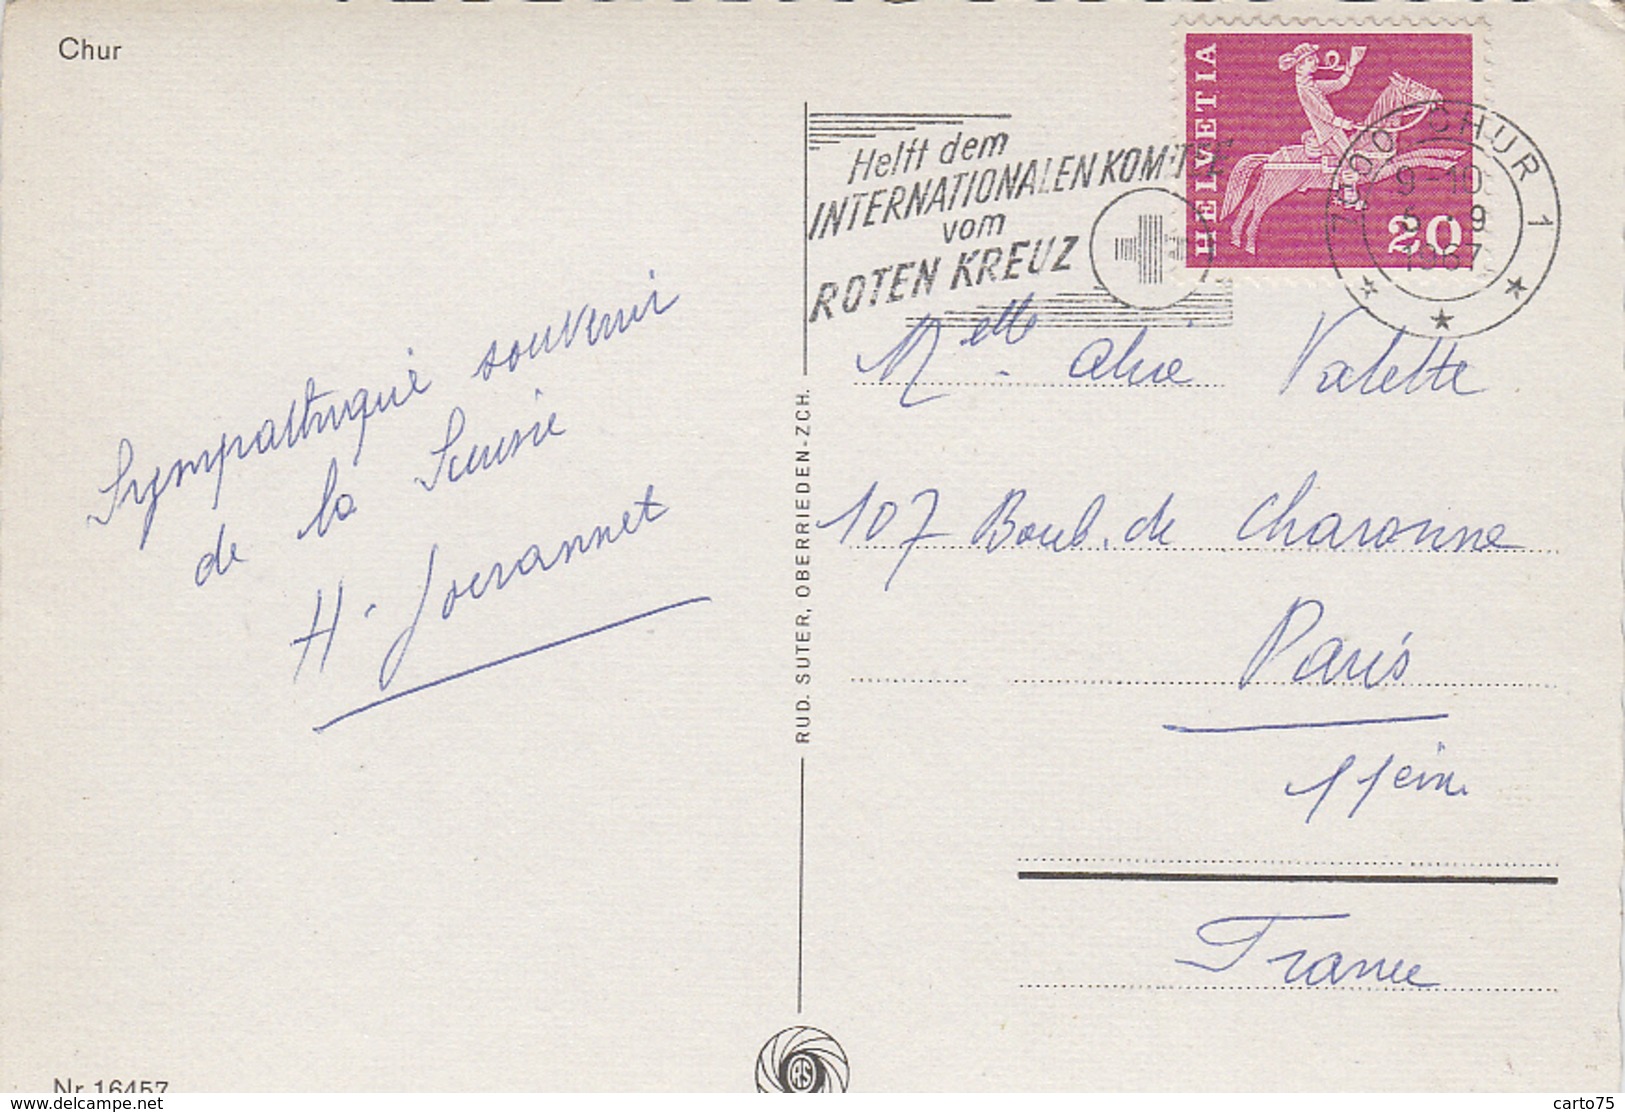 Chur
Helft dem
INTERNATIONALEN KOMITEE
vom
ROTEN KREUZ
HELVETIA
20
7000 CHUR 1
9-10
1967
Sympathique souvenir
de la Suisse
H. Jouvannet
Melle. Alice Valette
107 Boul. de Charonne
Paris
11 ein
France
RUD. SUTER, OBERRIEDEN-ZCH.
RS
Nr. 16457
http://www.delcampe.net
carto75